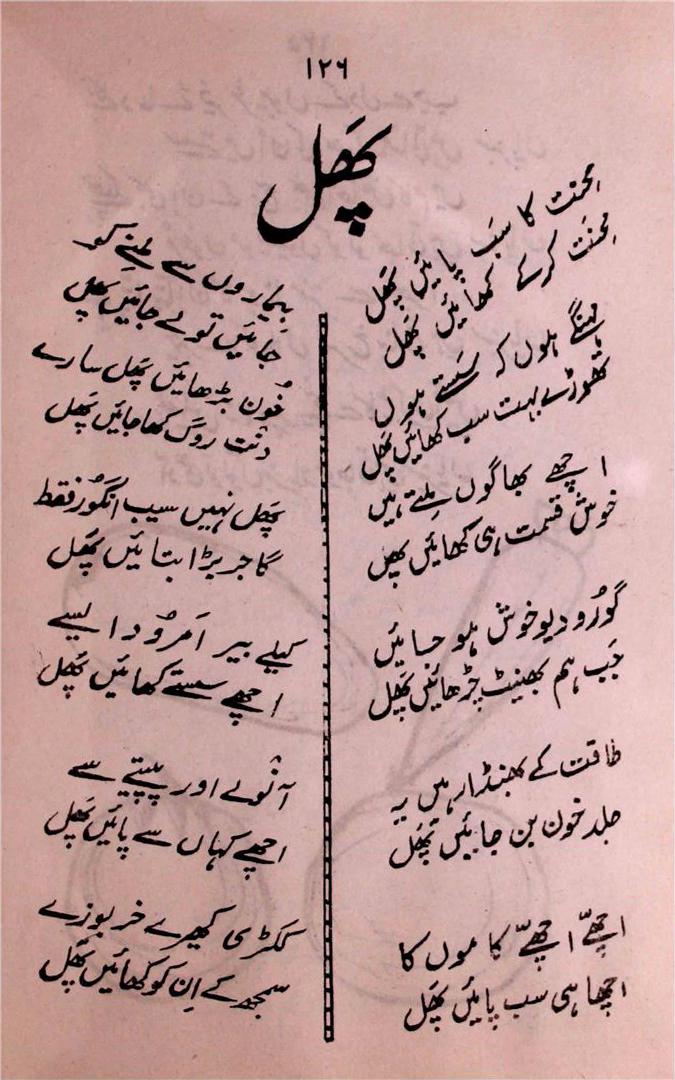 ۱۲۶
پھَل
محنت کا سَب پائیں پھَل
محِنَت کرکے کھائیں پھَل
مہنگے ہوں کہ سَستے ہوں
تھوڑے بہت سب کھائیں پھَل
اچھے بھاگوں ملتے ہیں
خوش قسمت ہی کھائیں پھل
گورُو دیو خوش ہو جائیں
جَب ہم بھینٹ چڑھائیں پھَل
طاقت کے بھنڈار ہیں یہ
جلد خون بن جائیں پھَل
اچھّے اچھّے کاموں کا
اچھا ہی سب پائیں پھَل
بیماروں سے ملنے کو
جَائیں تو لے جائیں پھَل
خُون بڑھائیں پھَل سارے
دنت روگ کھا جائیں پھَل
پھَل نہیں سیب انگوُر فقط
گاجر بڑا بتائیں پھَل
کیلے بیر اَمرُود ایسے
اچھے سستے کھائیں پھَل
آنولے اور پپیتے سے
اچھے کہاں سے پائیں پھَل
ککڑی کھیرے خربوزے
سمجھ کے اِن کو کھائیں پھَل